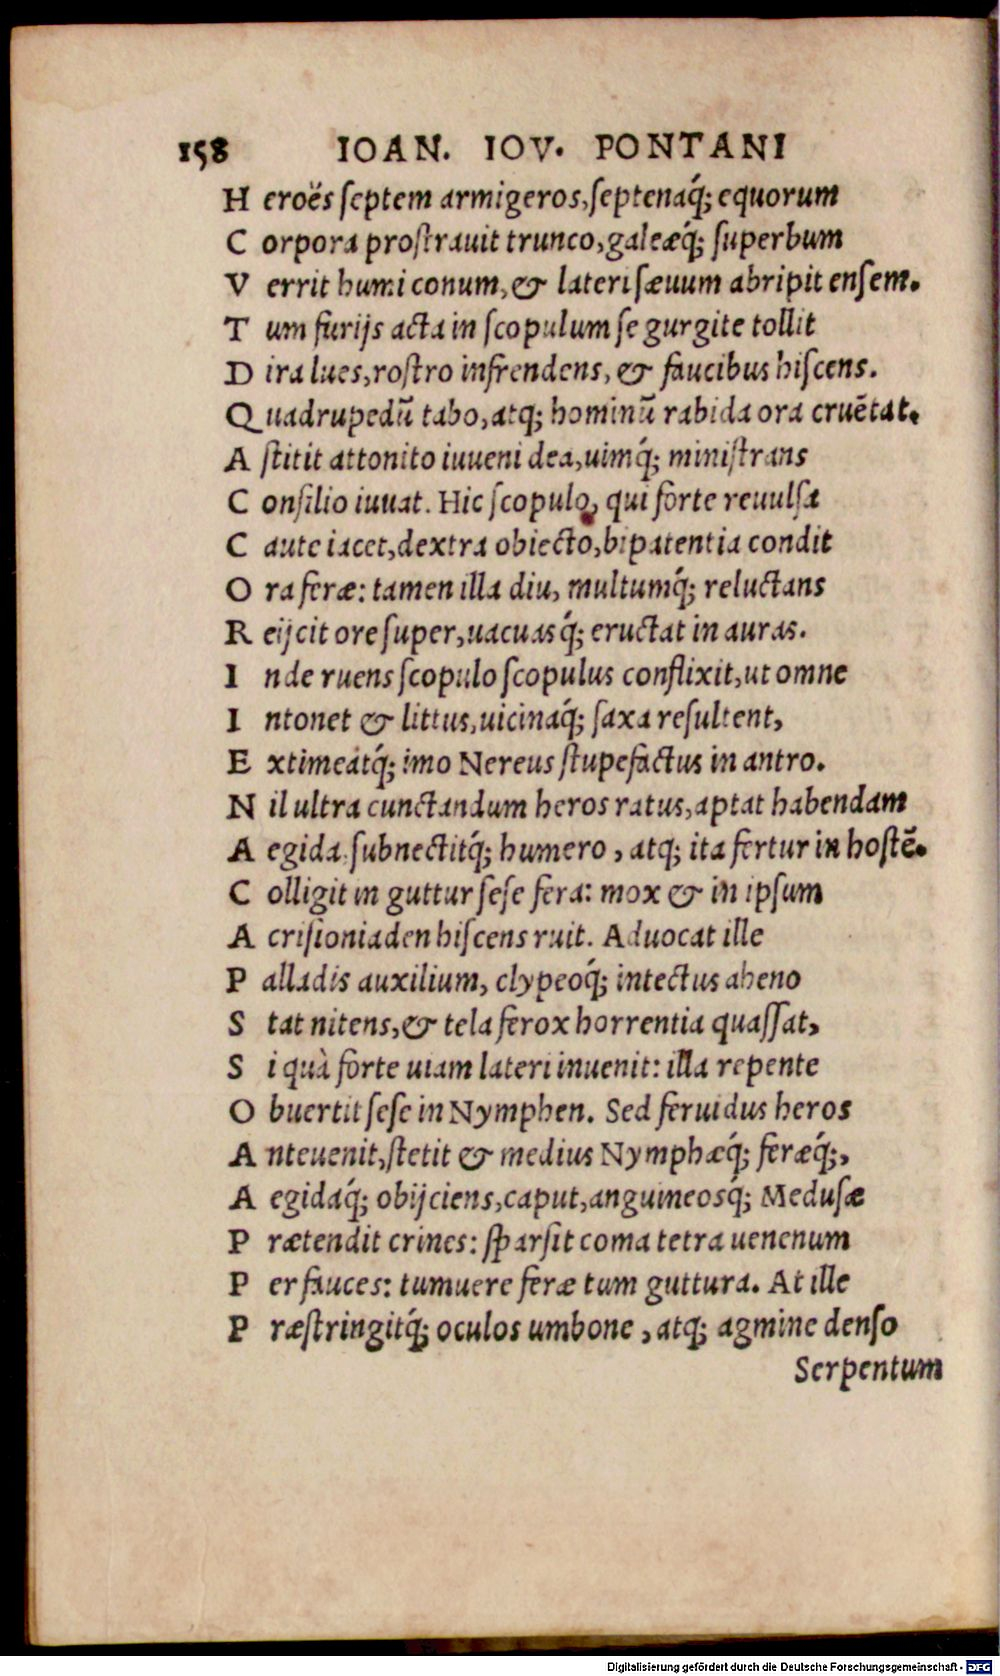 158 IOAN. IOV. PONTANI
H eroës septem armigeros, septenaq́; equorum
C orpora prostrauit trunco, galeæq́; superbum
V errit humi conum, & lateri sæuum abripit ensem.
T um furijs acta in scopulum se gurgite tollit
D ira lues, rostro infrendens, & faucibus hiscens.
Q uadrupedū tabo, atq; hominū rabida ora cruētat.
A stitit attonito iuueni dea, uimq́; ministrans
C onsilio iuuat. Hic scopulo, qui forte reuulsa
C aute iacet, dextra obiecto, bipatentia condit
O ra feræ: tamen illa diu, multumq́; reluctans
R eijcit ore super, uacuasq́; eructat in auras.
I nde ruens scopulo scopulus conflixit, ut omne
I ntonet & littus, uicinaq́; saxa resultent,
E xtimeatq́; imo Nereus stupefactus in antro.
N il ultra cunctandum heros ratus, aptat habendam
A egida, subnectitq́; humero, atq; ita fertur in hostē.
C olligit in guttur sese fera: mox & in ipsum
A crisioniaden hiscens ruit. Aduocat ille
P alladis auxilium, clypeoq́; intectus aheno
S tat nitens, & tela ferox horrentia quassat,
S i quà forte uiam lateri inuenit: illa repente
O buertit sese in Nymphen. Sed feruidus heros
A nteuenit, stetit & medius Nymphæq́; feræq́;,
A egidaq́; obijciens, caput, anguineosq́; Medusæ
P rætendit crines: sparsit coma tetra uenenum
P er fauces: tumuere feræ tum guttura. At ille
P ræstringitq́; oculos umbone, atq; agmine denso
Serpentum
Digitalisierung gefördert durch die Deutsche Forschungsgemeinschaft - DFG